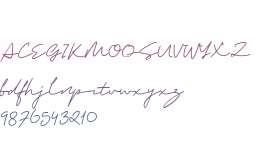 ACEGIKMOQSUVWYXZ
bdfhjlnprtvwxyxz
9876543210